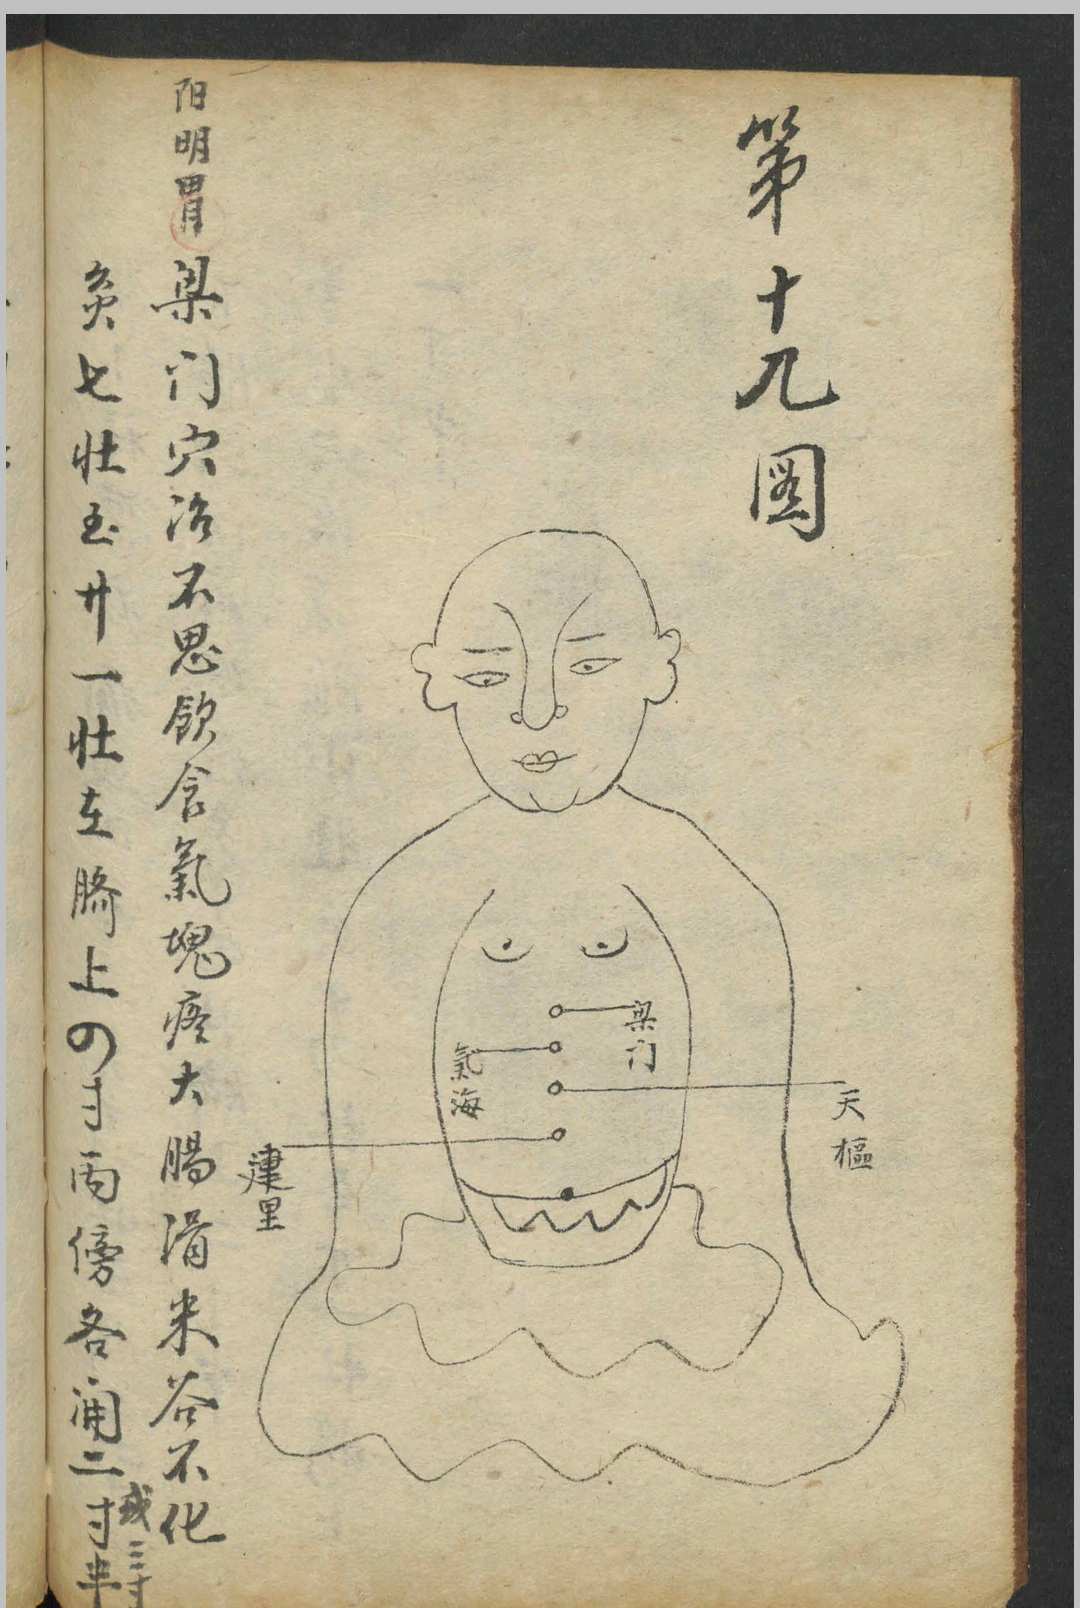 第十九图
梁门
天樞
氣海
建里
阳明胃
梁门穴治不思飲食氣塊疼大腸滑米谷不化
灸七壯至廿一壯在臍上四寸兩傍各開二寸半
或三寸